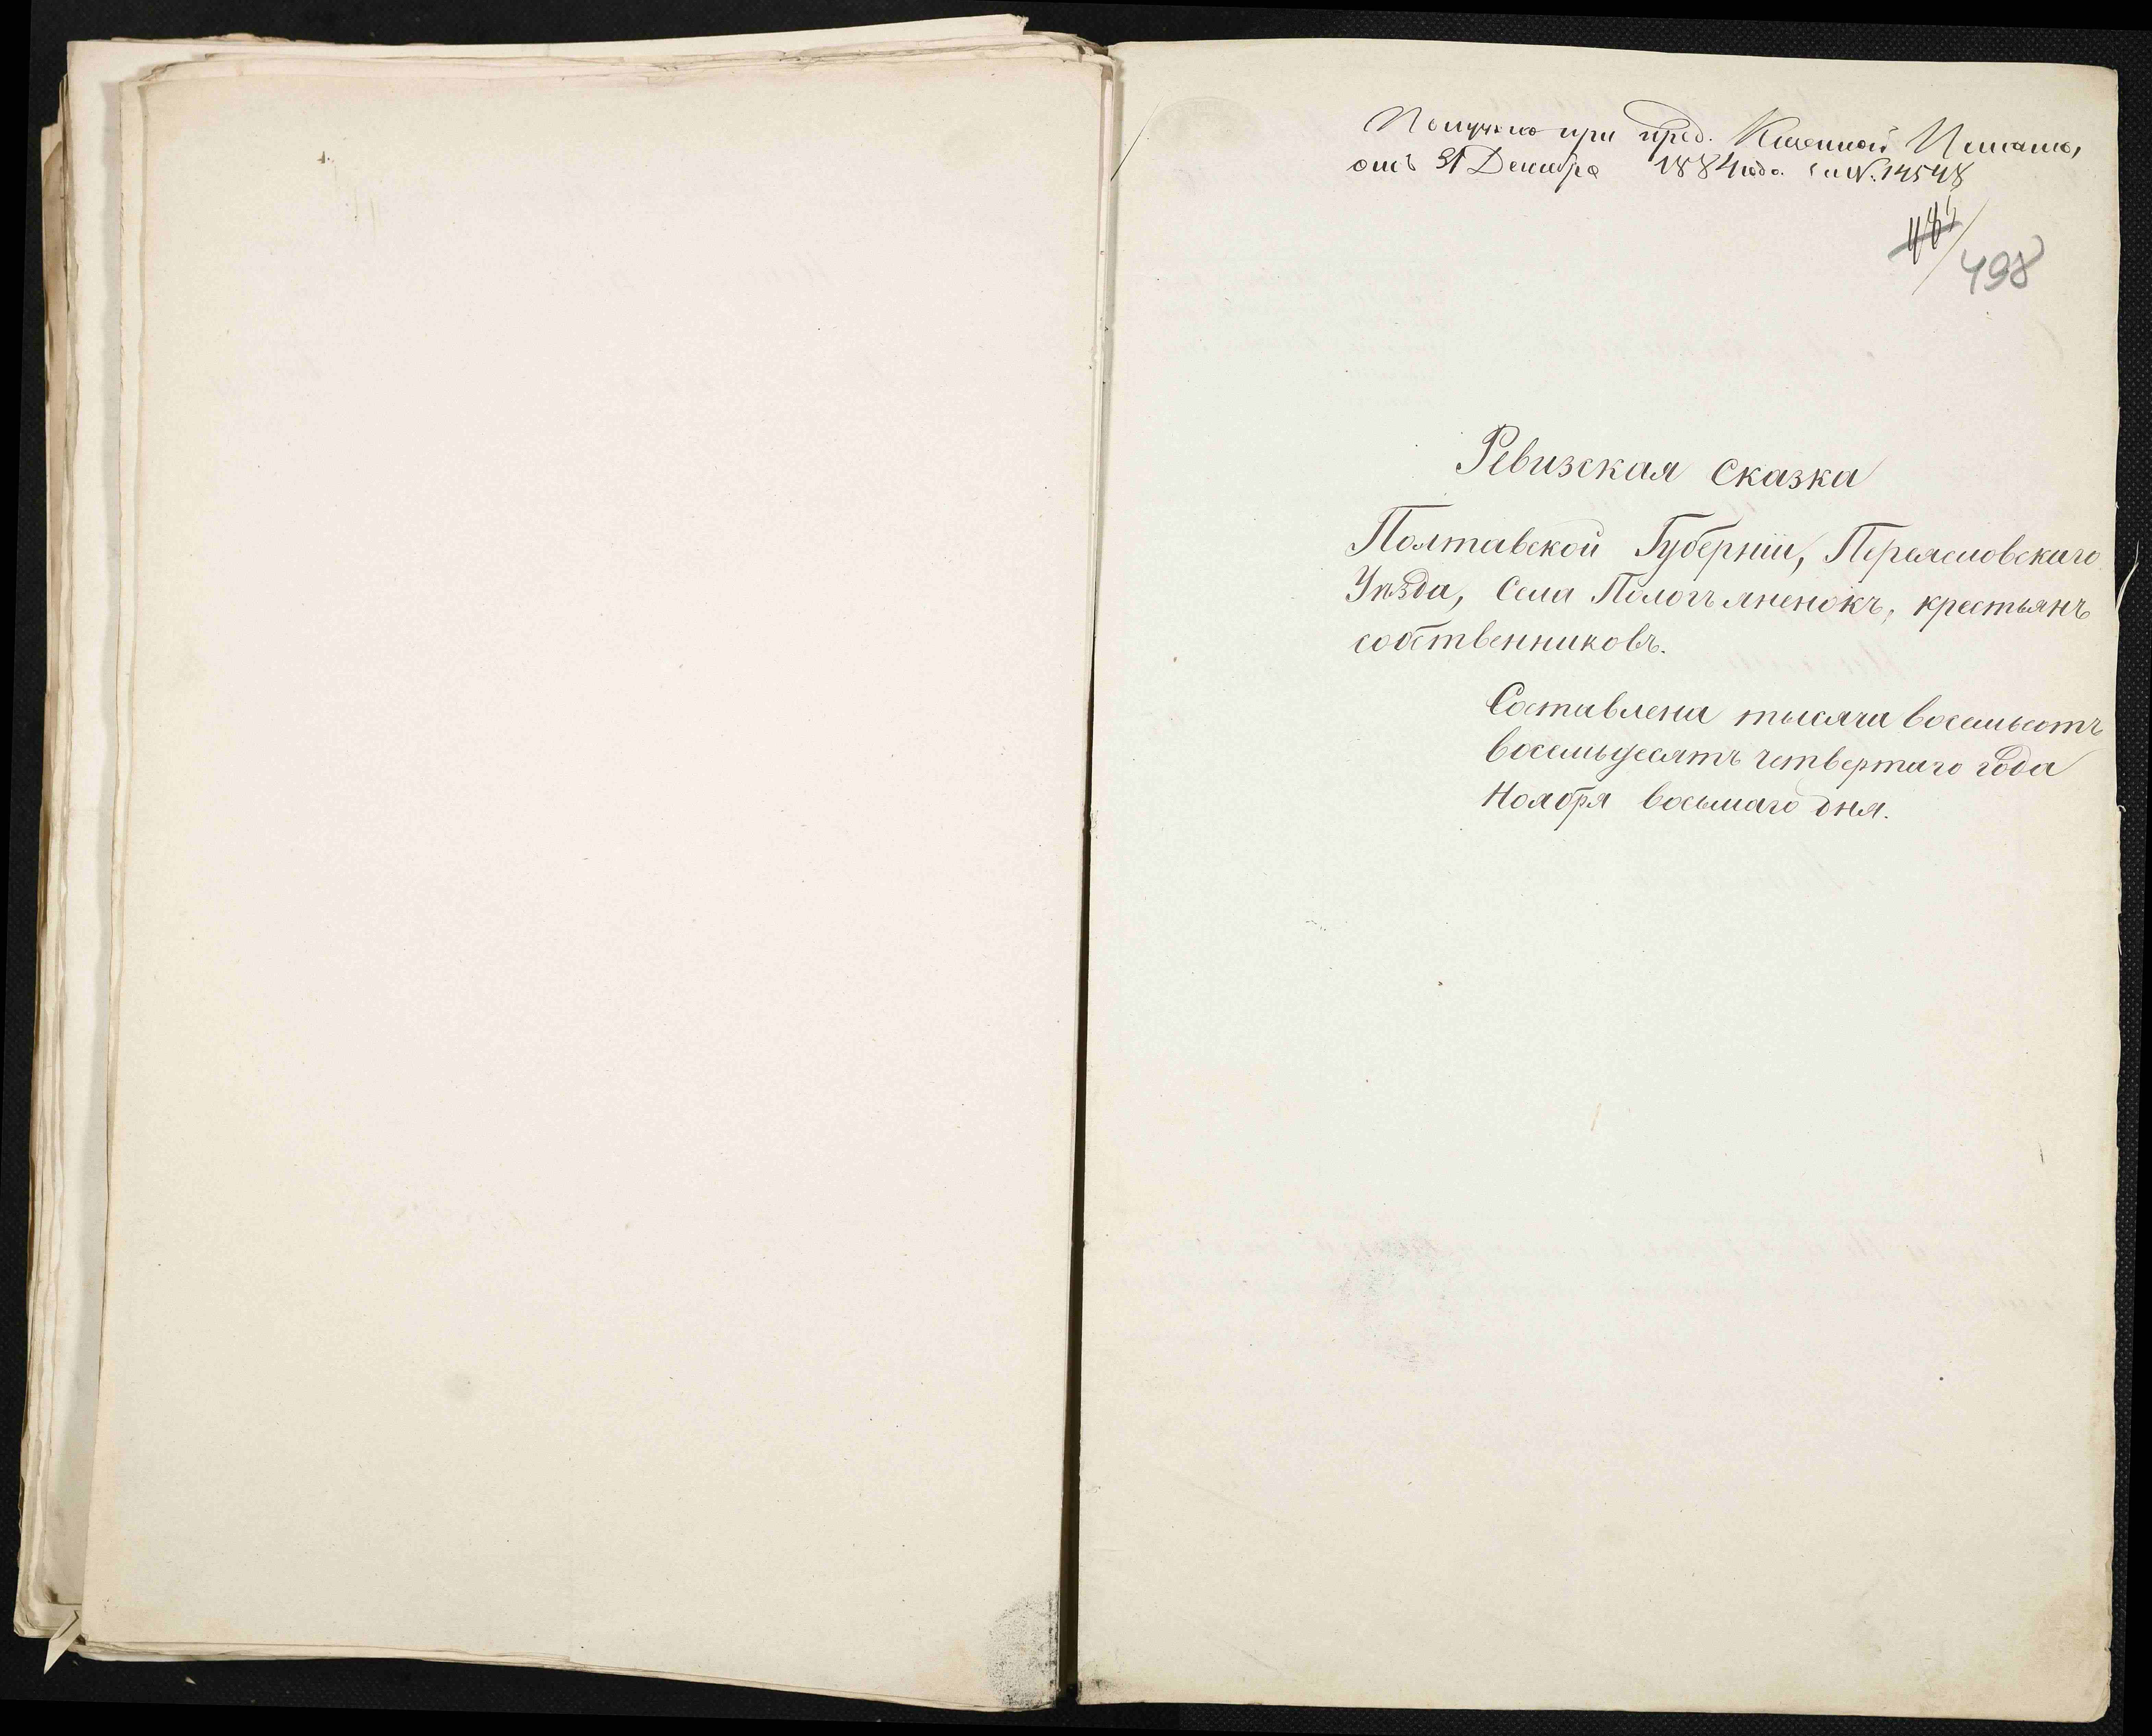 Получено при пред. Казенной Палаты,
отъ 31 Декабря 1884 года за №. 14548
498
Ревизская Сказка
Полтавской Губерніи, Переяславскаго
Уѣзда, Села Пологъ Яненокъ, крестьянъ
собственниковъ.
Составлена тысяча восемьсотъ
восемьдесятъ четвертаго года
Ноября восьмаго дня.